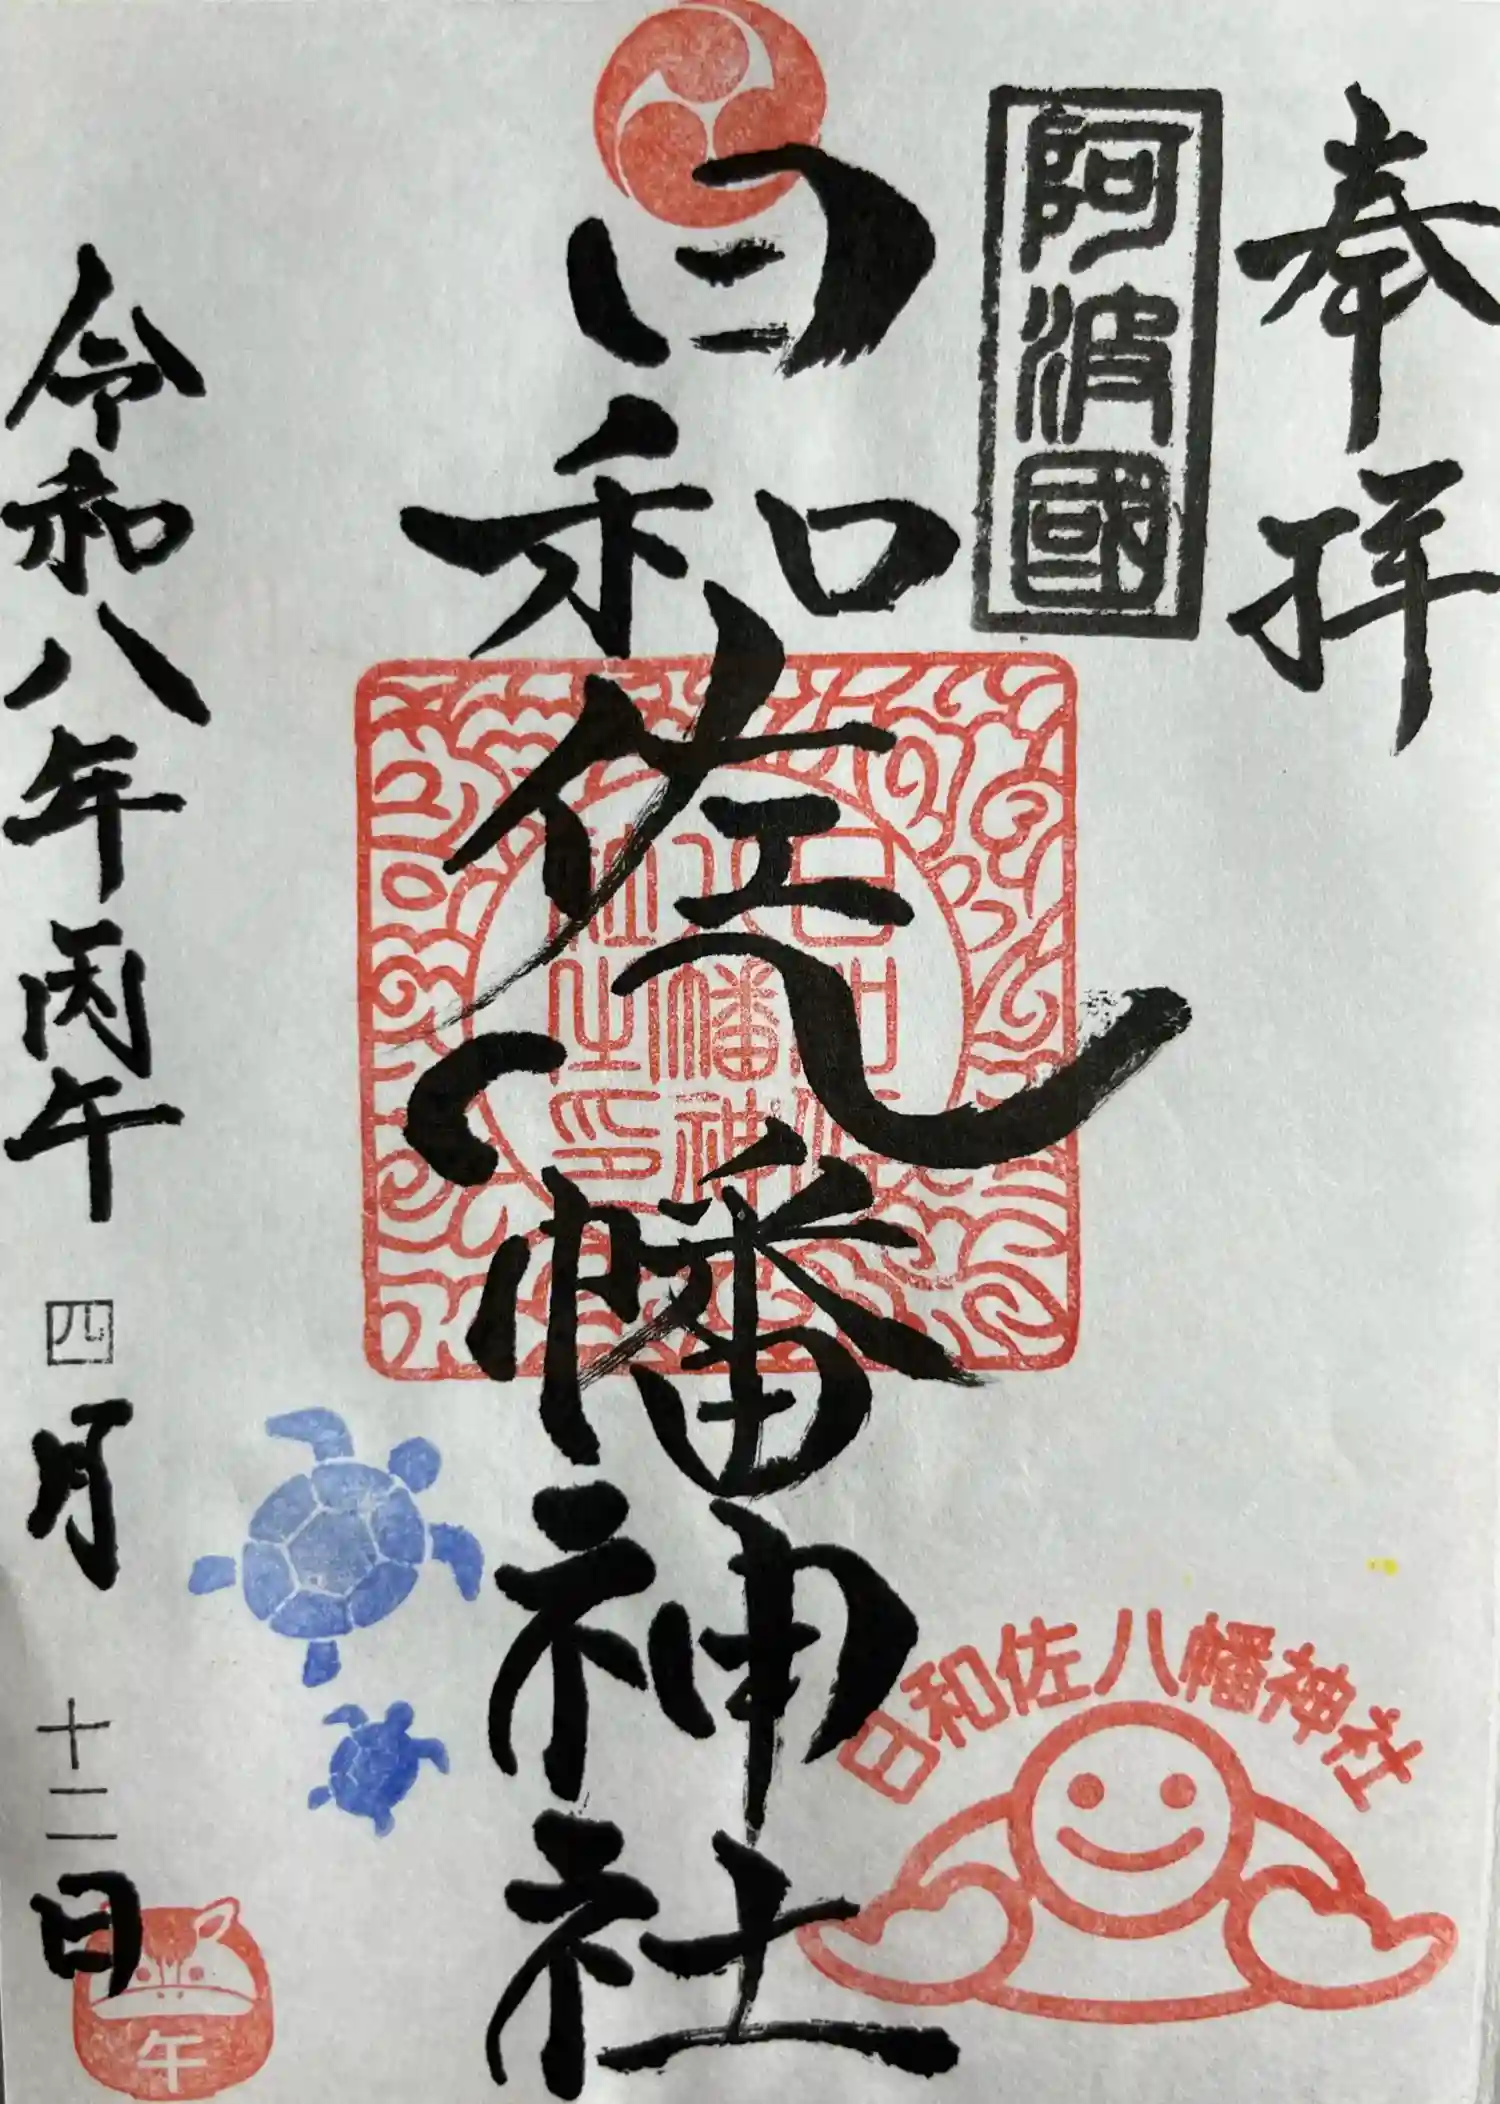 奉拝
阿波國
日和佐八幡神社
日和佐八幡神社之印
令和八年丙午四月十二日
日和佐八幡神社
午